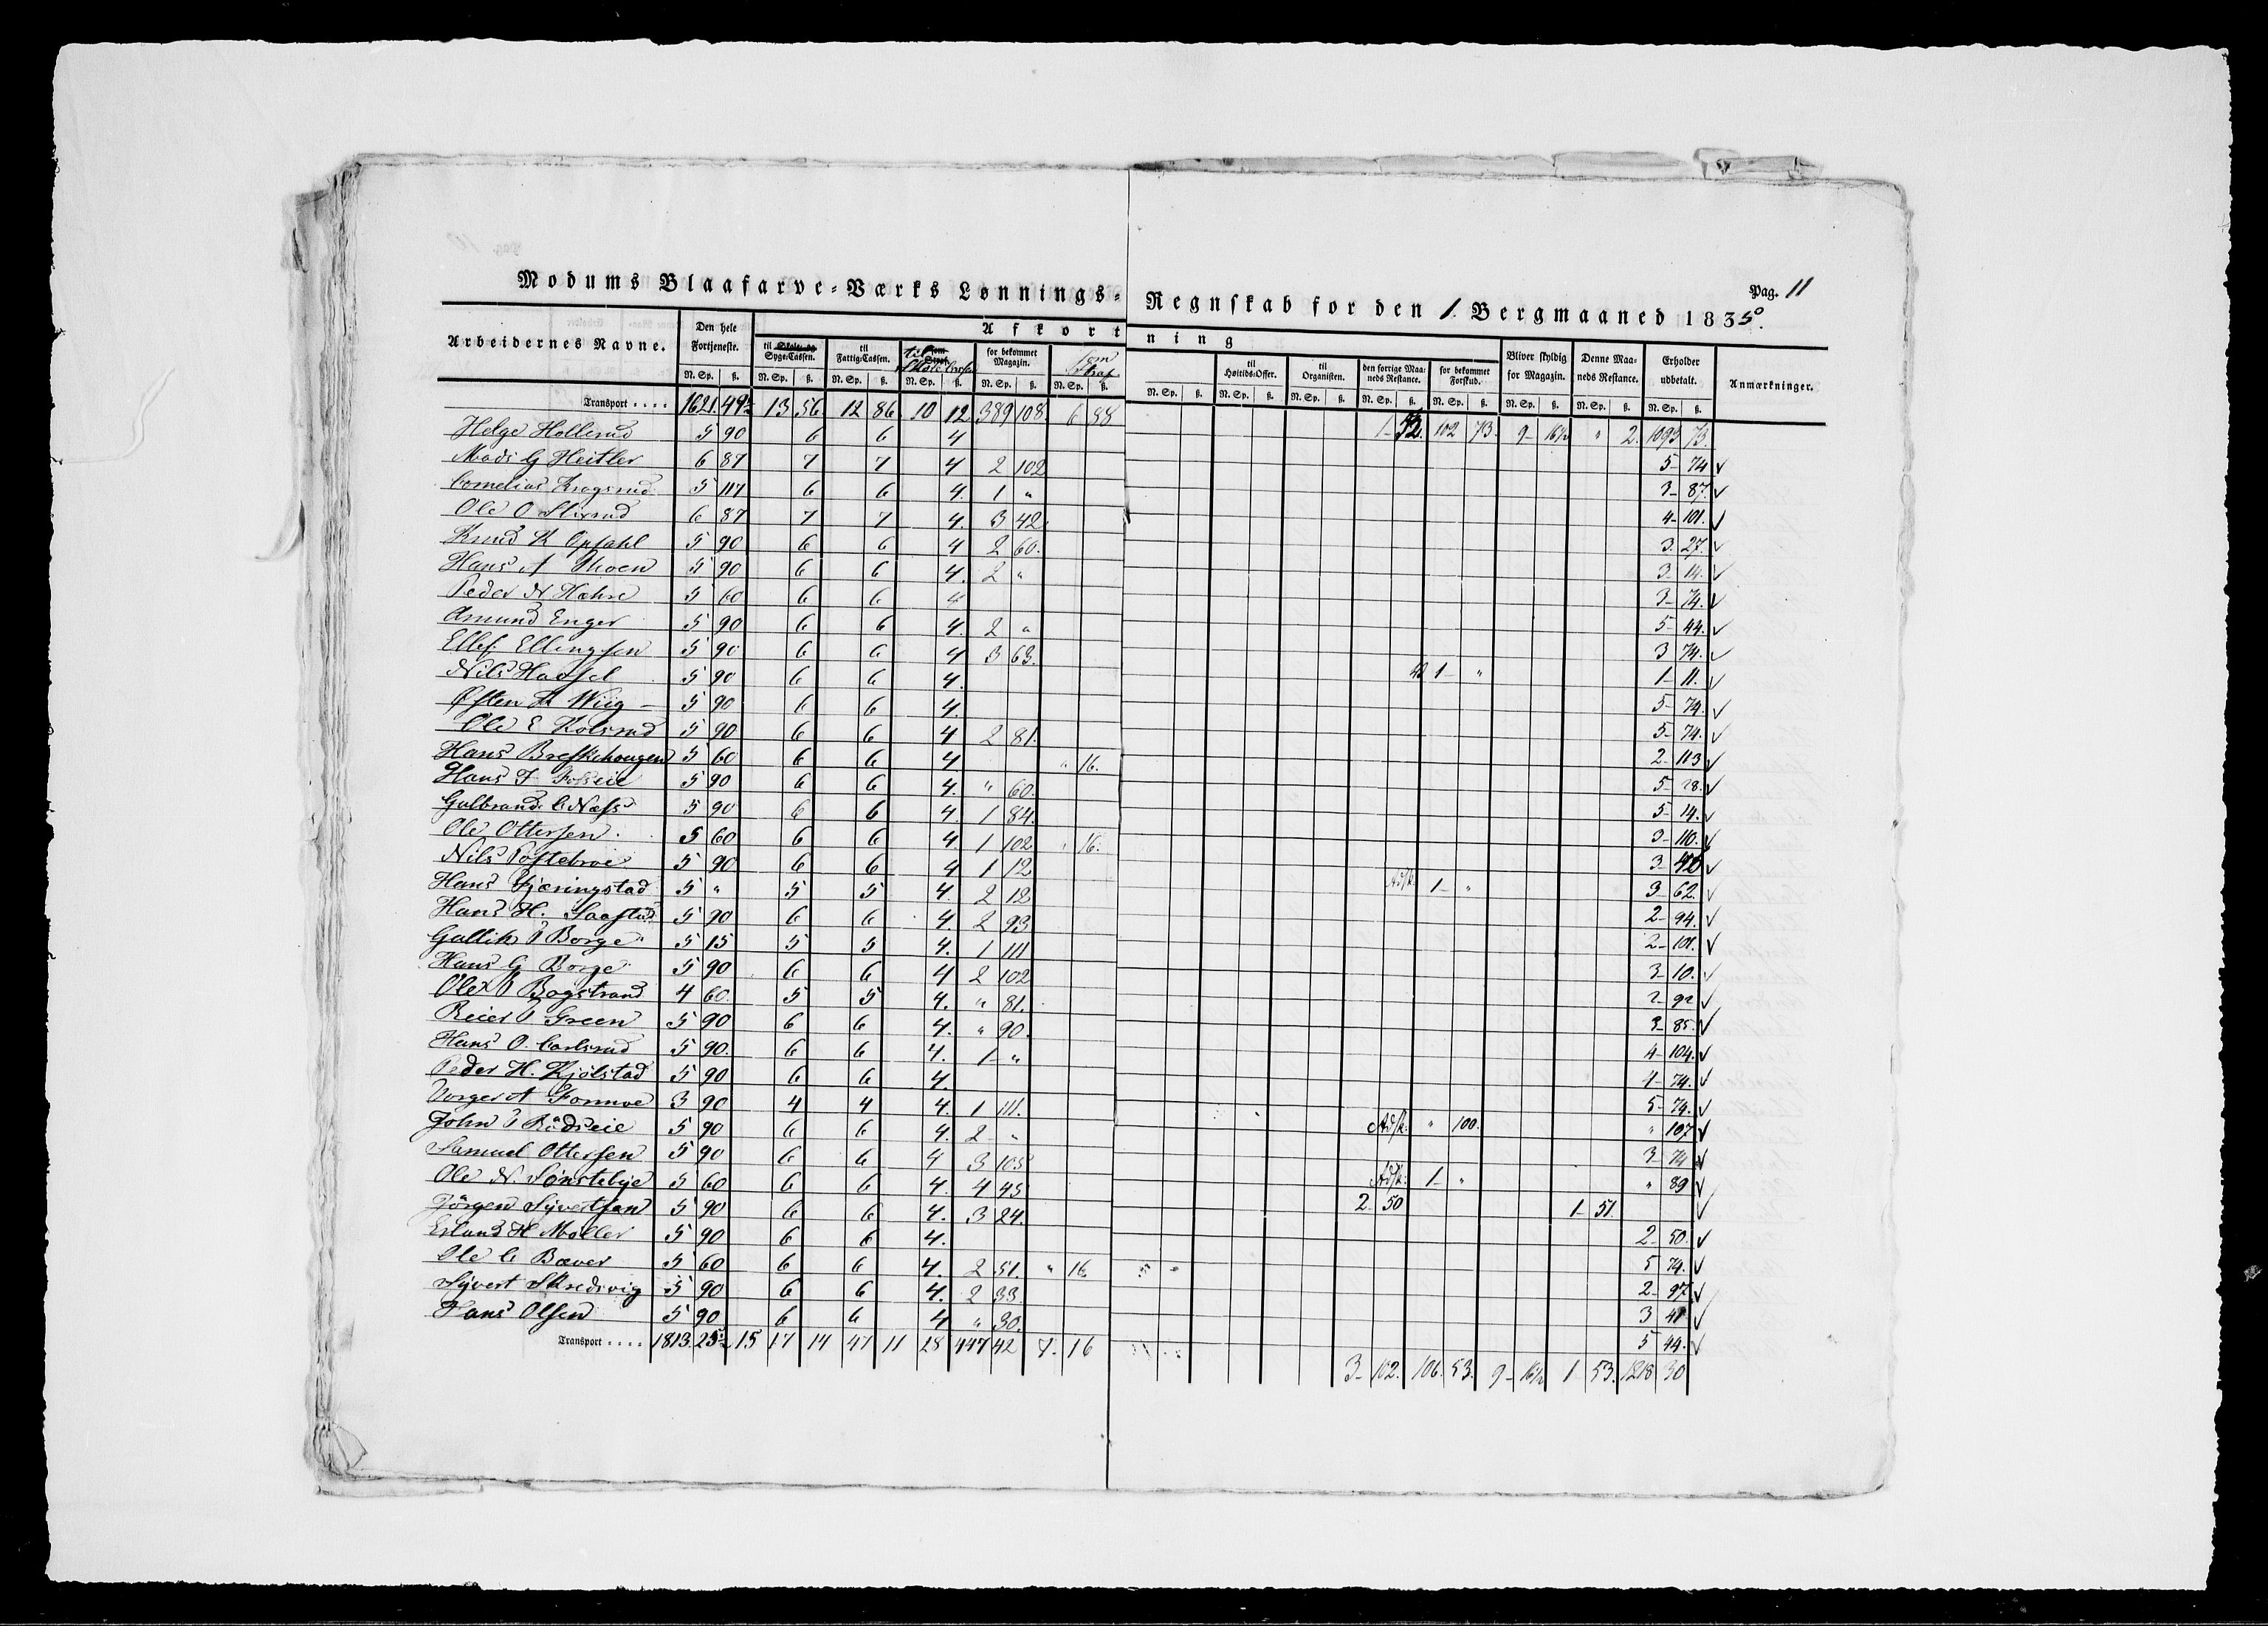 Pag. 11
Modums Blaafarve-Værks Lønnings-Regnskab for den 1. Bergmaaned 1835.
Arbeidernes Navne. Den hele Fortjeneste. Afkortning Bliver skyldig for Magazin. Denne Maaneds Restance. Erholder udbetalt. Anmærkninger.
til Skole og Syge-Cassen. til Fattig-Cassen. til Skole Cassen for bekommet Magazin. som Straf til Høitids-Offer. til Organisten. den forrige Maaneds Restance. for bekommet Forskud.
N. Sp. ß. N. Sp. ß. N. Sp. ß. N. Sp. ß. N. Sp. ß. N. Sp. ß. N. Sp. ß. N. Sp. ß. N. Sp. ß. N. Sp. ß. N. Sp. ß. N. Sp. ß. N. Sp. ß. N. Sp. ß.
Transport .... 1621. 49½ 13 56 12 86 10 12 389 108 6 88 1- 52. 102 73. 9- 16½ " 2. 1093 73.
Helge Hollerud 5 90 6 6 4 5- 74 ✓
Mads G Heitler 6 87 7 7 4 2 102 3- 87. ✓
Cornelius Krogsrud 5 117 6 6 4. 1 " 4- 101. ✓
Ole O 6 87 7 7 4. 3 42. 3. 27. ✓
Knud K Opsahl 5 90 6 6 4 2 60. 3- 14. ✓
Hans A Moen 5 90 6 6 4. 2 " 3- 74. ✓
Peder N Hæhre 5 60 6 6 4 5- 44. ✓
Amund Enger 5 90 6 6 4. 2 " 3 74. ✓
Ellef Ellingsen 5 90 6 6 4 3 63. 1- " 1- 11. ✓
Nils Hassel 5 90 6 6 4. 5- 74. ✓
Østen A Wiig - 5 90 6 6 4. 5- 74. ✓
Ole E Kolsrud 5 90 6 6 4 2 81. 2- 113 ✓
Hans Breskehougen 5 60 6 6 4 " 16. 5- 28. ✓
Hans F Fosseie 5 90 6 6 4. " 60. 5- 14. ✓
Gulbrand C Næss 5 90 6 6 4. 1 84. 3- 110. ✓
Ole Ottersen. 5 60 6 6 4. 1 102 " 16. 3- 42 ✓
Nils Postebroe 5 90 6 6 4 1 12 Adsk. 1- " 3- 62. ✓
Hans Gjæringstad 5 " 5 5 4. 2 12 2- 94. ✓
Hans H. Saastad 5 90 6 6 4. 2 93 2- 101. ✓
Gullik O Borge 5 15 5 5 4. 1 111 3- 10. ✓
Hans G Borge 5 90 6 6 4 2 102 2- 92 ✓
Ole O Bogstrand 4 60. 5 5 4. " 81. 3- 85. ✓
Reier O Green 5 90 6 6 4. " 90. 4- 104. ✓
Hans O. Carlsrud 5 90. 6 6 4. 1- " 4- 74. ✓
Peder H. Kjölstad 5 90 6 6 4. 5- 74. ✓
Torger A Formoe 3 90 4 4 4. 1 111. Adsk. " 100. " 107 ✓
John O Rudseie 5 90 6 6 4. 2- " 3- 74 ✓
Samuel Ottersen 5 90 6 6 4 3 105 Adsk. 1- " " 89 ✓
Ole N. Sönstebye 5 60 6 6 4. 4 45 2- 50 1- 51. ✓
Jörgen Syvertsen 5 90 6 6 4. 3 24. 2- 50. ✓
Erland H Möller 5 90 6 6 4. 5 74. ✓
Ole C Bæver 5 60 6 6 4. 2 51. " 16. 5 " 2- 97. ✓
Syvert Skredsvig 5 90 6 6 4. 2 33. 3 41 ✓
Hans Olsen 5 90 6 6 4 " 30. 5 44. ✓
Transport .... 1813. 25½ 15 17 14 47 11 28 447 42 7. 16 3- 102. 106. 53. 9- 16½ 1- 53. 1218 30